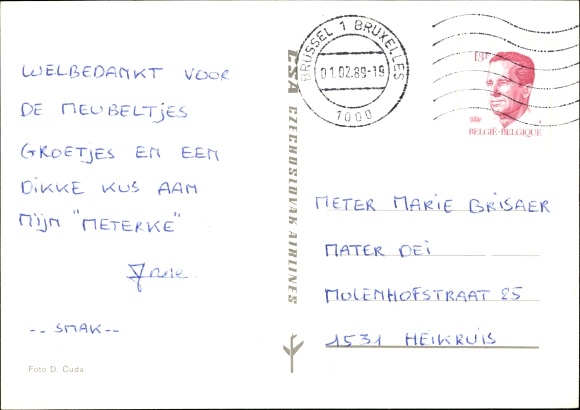 WELBEDANKT VOOR
DE MEUBELTJES
GROETJES EN EEN
DIKKE KUS AAN
MIJN "METERKE"
-- SMAK --
Foto D. Čuda
ČSA CZECHOSLOVAK AIRLINES
BRUSSEL 1 BRUXELLES
01.02.89-19
1000
13F
BELGIË-BELGIQUE
METER MARIE BRISAER
MATER DEI
MOLENHOFSTRAAT 25
1531 HEIKRUIS